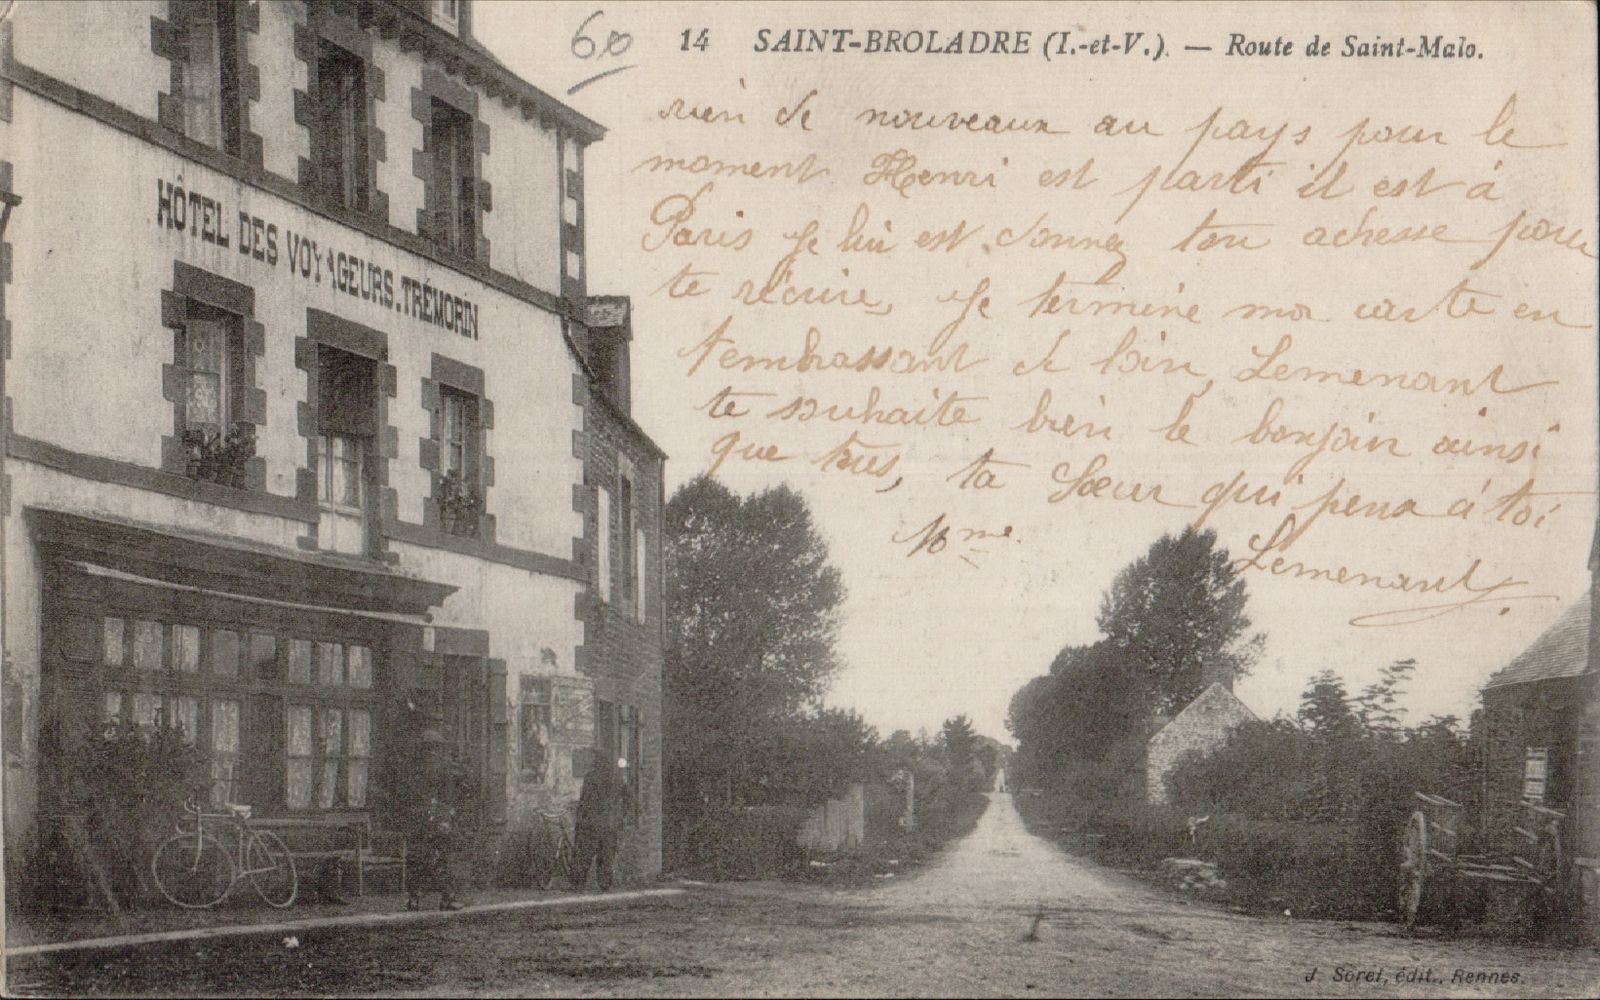 60
14 SAINT-BROLADRE (I.-et-V.). — Route de Saint-Malo.
rien de nouveaux au pays pour le
moment Henri est parti il est à
Paris Je lui est donnez ton adresse pour
te récrire, Je termine ma carte en
t'embrassant de loin, Lemenant
te souhaite bien le bonjoin ainsi
que tous, ta Sœur qui pens à toi
Mme Lemenant
HÔTEL DES VOYAGEURS. TRÉMORIN
J. Sorel, édit., Rennes.